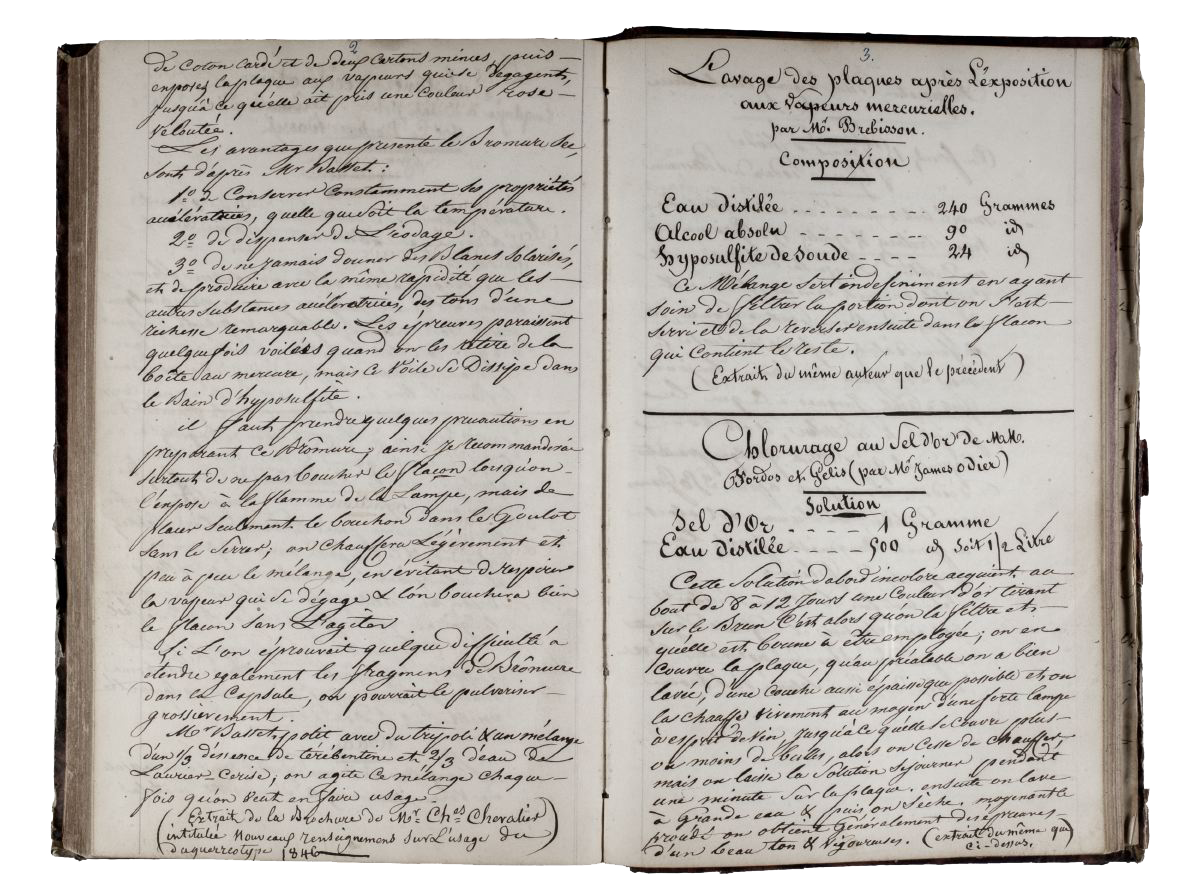 2
de coton cardé et de deux cartons minces puis
exposez la plaque aux vapeurs qui se dégagent,
jusqu'à ce qu'elle ait pris une couleur rose
veloutée.
Les avantages que présente le Bromure sec
sont d'après Mr Basset :
1º de Conserver Constamment ses propriétés
accélératrices, quelle que soit la température.
2º de dispenser de l'iodage.
3º de ne jamais donner des Blancs Solarisés,
et de produire avec la même rapidité que les
autres substances accélératrices, des tons d'une
richesse remarquable. Les épreuves paraissent
quelquefois voilées quand on les retire de la
boîte au mercure, mais ce voile se Dissipe dans
le Bain d'hyposulfite.
il faut prendre quelques précautions en
préparant ce Brômure; ainsi je recommanderai
surtout de ne pas boucher le flacon lorsqu'on
l'expose à la flamme de la Lampe, mais de
placer seulement le bouchon dans le Goulot
sans le serrer; on chauffera Légèrement et
peu à peu le mélange, en évitant de respirer
la vapeur qui se dégage & l'on bouchera bien
le flacon sans l'agiter
Si L'on éprouvait quelque difficulté à
etendre egalement les fragmens de Brômure
dans la Capsule, on pourrait le pulveriser
grossièrement.
Mr Basset, polit avec du tripoli & un mélange
d'un 1/3 d'essence de térébentine et 2/3 d'eau de
Laurier Cerise; on agite ce mélange chaque
fois qu'on veut en faire usage.
(Extrait de la Brochure de Mr. Ches Chevalier
intitulée Nouveaux renseignemens sur L'usage du
daguerreotype 1846)
3.
Lavage des plaques après L'exposition
aux vapeurs mercurielles.
par Mr. Brebisson.
Composition
Eau distilée - - - - - - - - 240 Grammes
Alcool absolu - - - - - - - 90 id
Hyposulfite de Soude - - - - 24 id
Ce Mélange sert indefiniment en ayant
soin de filtrer la portion dont on s'est
servi et de la reverser ensuite dans le flacon
qui contient le reste.
(Extrait du même auteur que le précédent)
Chlorurage au Sel d'or de MM.
Fordos et Gélis (par Mr James Odier)
Solution
Sel d'Or - - - - 1 Gramme
Eau distilée - - - - 500 id Soit 1/2 Litre
Cette Solution d'abord incolore acquiert au
bout de 8 à 12 Jours une Couleur d'or tirant
sur le Brun C'est alors qu'on la filtre et
quelle est bonne à être employée; on en
couvre la plaque, qu'au préalable on a bien
lavée, d'une couche aussi épaisse que possible et on
la chauffe vivement au moyen d'une forte lampe
à esprit de vin, jusqu'à ce qu'elle se couvre plus
ou moins de bulles, alors on Cesse de chauffer
mais on laisse la Solution sejourner pendant
une minute sur la plaque. ensuite on lave
à Grande eau & puis on Sèche. moyennant
procédé on obtient Généralement des épreuves
d'un beau ton & vigoureuses. (extrait du même que
ci-dessus.)